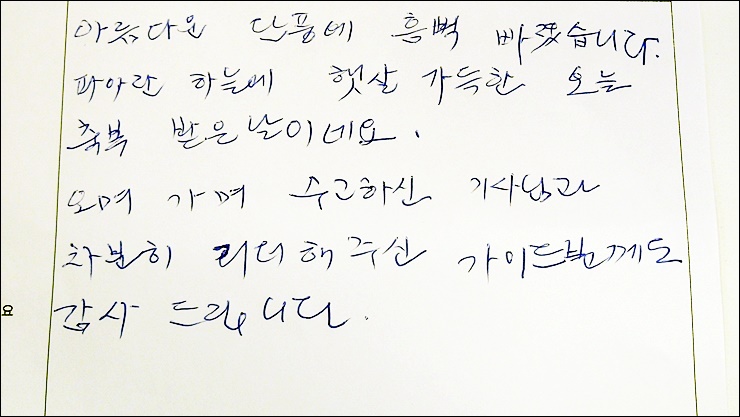 아름다운 단풍에 흠뻑 빠졌습니다.
파아란 하늘에 햇살 가득한 오늘
축복 받은 날이네요.
오며 가며 수고하신 기사님과
차분히 리더해주신 가이드분께도
감사 드립니다.